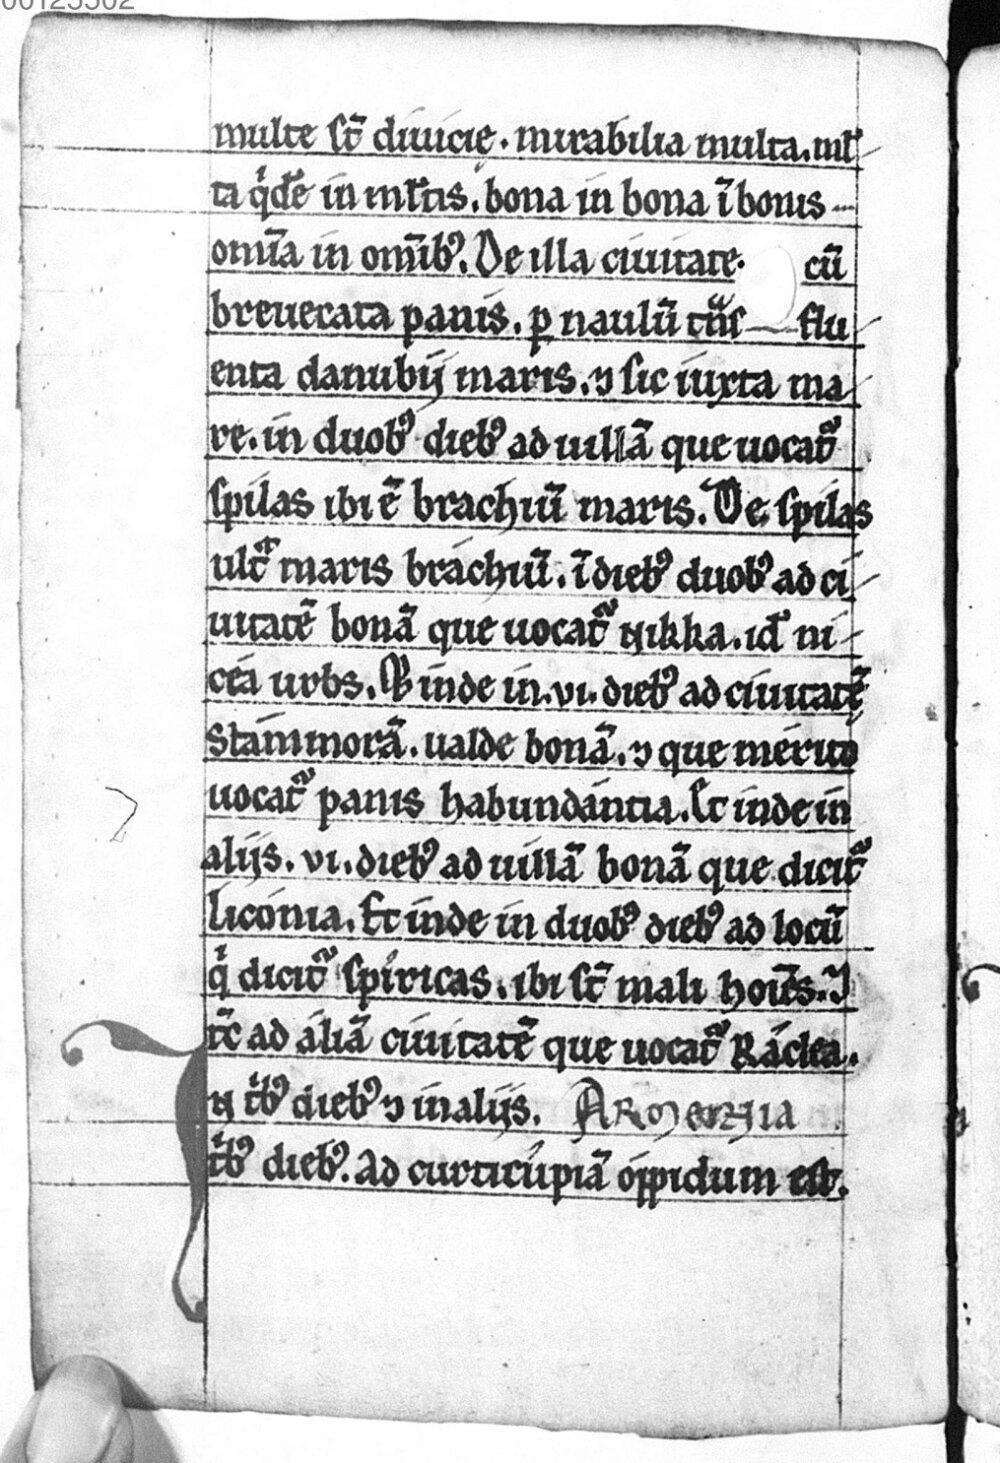 00125502
multe st̄ diuicie. mirabilia multa. ml̄
ta qͥdē in ml̄tis. bona in bona ī bonis
omīa in om̄ibꝰ. De illa ciuitate. cū
breuecata panis. ꝑ naulū flu
enta danubij maris. ⁊ sic iuxta ma
re. in duobꝰ diebꝰ ad uillā que uocat᷑
spilas ibi ē brachiū maris. De spilas
ult̄ maris brachiū. ī diebꝰ duobꝰ ad ci
uitatē bonā que uocat᷑ nikka. id̄ ni
cea urbs. inde in. vi. diebꝰ ad ciuitatē
Stammorā. ualde bonā. ⁊ que merito
uocat᷑ panis habundantia. Et inde in
alijs. vi. diebꝰ ad uillā bonā que dicit᷑
liconia. Et inde in duobꝰ diebꝰ ad locū
qͥ dicit᷑ spiricas. ibi st̄ mali hoīes. I
tē ad aliā ciuitatē que uocat᷑ Raclea.
ī tͥbꝰ diebꝰ ⁊ in alijs. ARMENIA
tͥbꝰ diebꝰ. Ad curticupiā oppidum est.